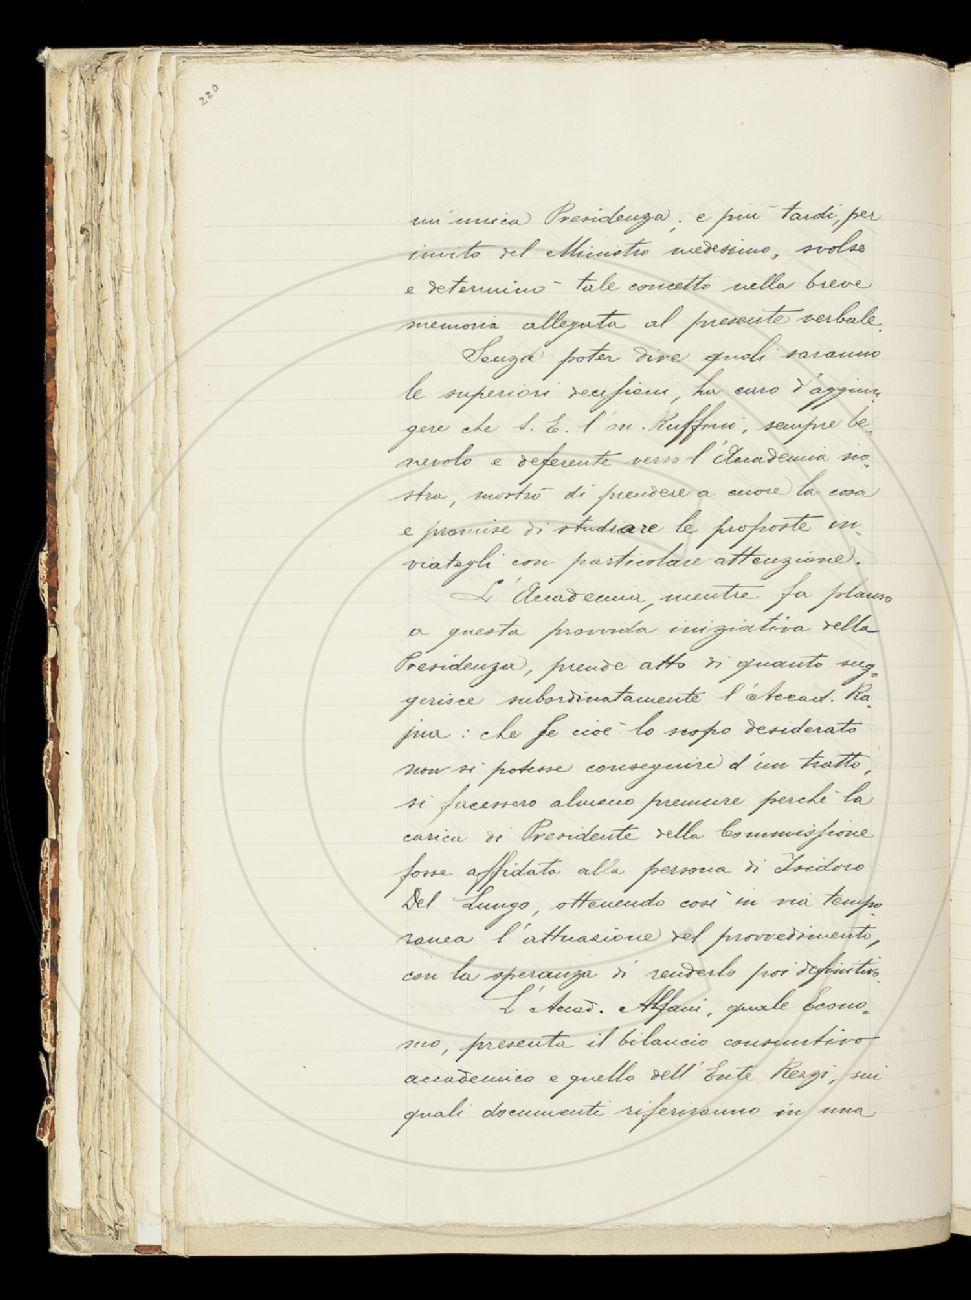 220
un'unica Presidenza; e più tardi, per
invito del Ministro medesimo, svolse
e determinò tale concetto nella breve
memoria allegata al presente verbale.
Senza poter dire quali saranno
le superiori decisioni, ha caro d'aggiun-
gere che S. E. l'on. Ruffini, sempre be-
nevolo e deferente verso l'Accademia no-
stra, mostrò di prendere a cuore la cosa
e promise di studiare le proposte in-
viategli con particolare attenzione.
L'Accademia, mentre fa plauso
a questa provvida iniziativa della
Presidenza, prende atto di quanto sug-
gerisce subordinatamente l'Accad. Ra-
jna: che se cioè lo scopo desiderato
non si potesse conseguire d'un tratto,
si facessero almeno premure perchè la
carica di Presidente della Commissione
fosse affidata alla persona di Isidoro
Del Lungo, ottenendo così in via tempo-
ranea l'attuazione del provvedimento,
con la speranza di renderlo poi definitivo.
L'Accad. Alfani, quale Econo-
mo, presenta il bilancio consuntivo
accademico e quello dell'Ente Rezzi, sui
quali documenti riferiranno in una